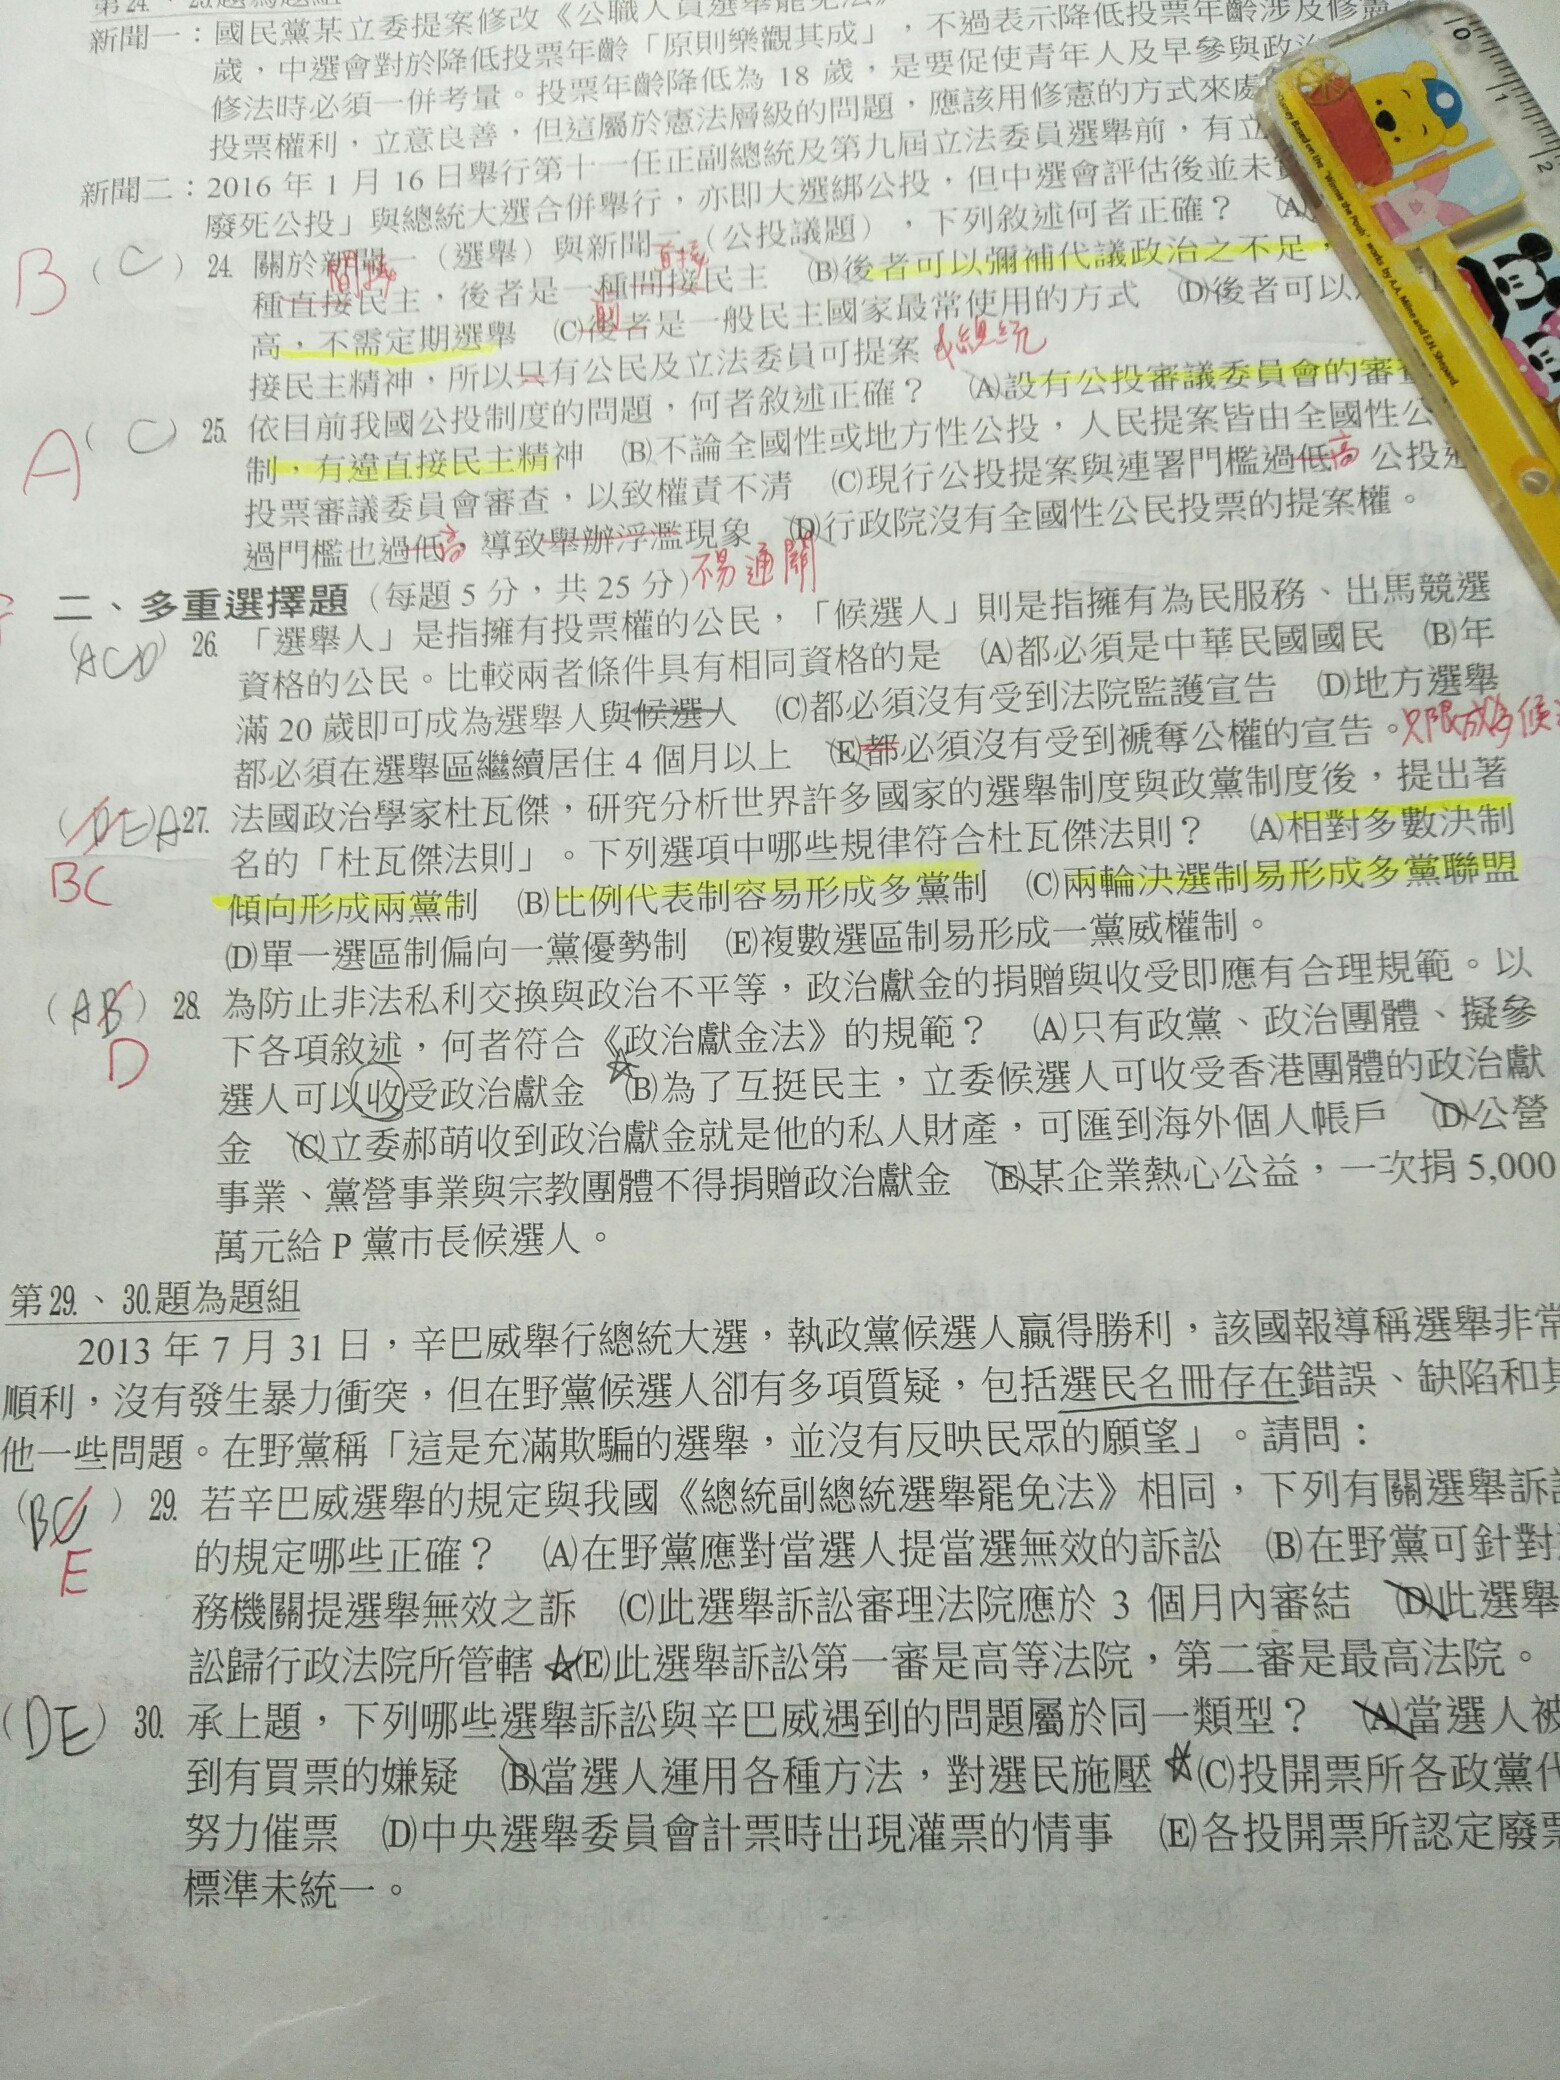 新聞一：國民黨某立委提案修改《公職人員選舉罷免法》
歲，中選會對於降低投票年齡「原則樂觀其成」，不過表示降低投票年齡涉及修憲
修法時必須一併考量。投票年齡降低為 18 歲，是要促使青年人及早參與政治
投票權利，立意良善，但這屬於憲法層級的問題，應該用修憲的方式來處
新聞二：2016 年 1 月 16 日舉行第十一任正副總統及第九屆立法委員選舉前，有立
廢死公投」與總統大選合併舉行，亦即大選綁公投，但中選會評估後並未
B
(C) 24. 關於新聞一（選舉）與新聞二（公投議題），下列敘述何者正確？ (A)
間接 直接
種直接民主，後者是一種間接民主 (B)後者可以彌補代議政治之不足，
前
高，不需定期選舉 (C)後者是一般民主國家最常使用的方式 (D)後者可以
接民主精神，所以只有公民及立法委員可提案
&總統
A
(C) 25. 依目前我國公投制度的問題，何者敘述正確？ (A)設有公投審議委員會的審查
制，有違直接民主精神 (B)不論全國性或地方性公投，人民提案皆由全國性公
投票審議委員會審查，以致權責不清 (C)現行公投提案與連署門檻過低 高 公投
過門檻也過低 高 導致舉辦浮濫現象 (D)行政院沒有全國性公民投票的提案權。
不易通關
二、多重選擇題（每題 5 分，共 25 分）
(ACD) 26. 「選舉人」是指擁有投票權的公民，「候選人」則是指擁有為民服務、出馬競選
資格的公民。比較兩者條件具有相同資格的是 (A)都必須是中華民國國民 (B)年
滿 20 歲即可成為選舉人與候選人 (C)都必須沒有受到法院監護宣告 (D)地方選舉
都必須在選舉區繼續居住 4 個月以上 (E)都必須沒有受到褫奪公權的宣告。
只限成為候
(DE)A
BC
27. 法國政治學家杜瓦傑，研究分析世界許多國家的選舉制度與政黨制度後，提出著
名的「杜瓦傑法則」。下列選項中哪些規律符合杜瓦傑法則？ (A)相對多數決制
傾向形成兩黨制 (B)比例代表制容易形成多黨制 (C)兩輪決選制易形成多黨聯盟
(D)單一選區制偏向一黨優勢制 (E)複數選區制易形成一黨威權制。
(AB) 28. 為防止非法私利交換與政治不平等，政治獻金的捐贈與收受即應有合理規範。以
D
下各項敘述，何者符合《政治獻金法》的規範？ (A)只有政黨、政治團體、擬參
選人可以收受政治獻金 ☆(B)為了互挺民主，立委候選人可收受香港團體的政治獻
金 (C)立委郝萌收到政治獻金就是他的私人財產，可匯到海外個人帳戶 (D)公營
事業、黨營事業與宗教團體不得捐贈政治獻金 (E)某企業熱心公益，一次捐 5,000
萬元給 P 黨市長候選人。
第29.、30.題為題組
2013 年 7 月 31 日，辛巴威舉行總統大選，執政黨候選人贏得勝利，該國報導稱選舉非常
順利，沒有發生暴力衝突，但在野黨候選人卻有多項質疑，包括選民名冊存在錯誤、缺陷和其
他一些問題。在野黨稱「這是充滿欺騙的選舉，並沒有反映民眾的願望」。請問：
(BC) 29. 若辛巴威選舉的規定與我國《總統副總統選舉罷免法》相同，下列有關選舉訴訟
E
的規定哪些正確？ (A)在野黨應對當選人提當選無效的訴訟 (B)在野黨可針對
務機關提選舉無效之訴 (C)此選舉訴訟審理法院應於 3 個月內審結 (D)此選舉
訟歸行政法院所管轄 ☆(E)此選舉訴訟第一審是高等法院，第二審是最高法院。
(DE) 30. 承上題，下列哪些選舉訴訟與辛巴威遇到的問題屬於同一類型？ (A)當選人被
到有買票的嫌疑 (B)當選人運用各種方法，對選民施壓 ☆(C)投開票所各政黨代
努力催票 (D)中央選舉委員會計票時出現灌票的情事 (E)各投開票所認定廢票
標準未統一。